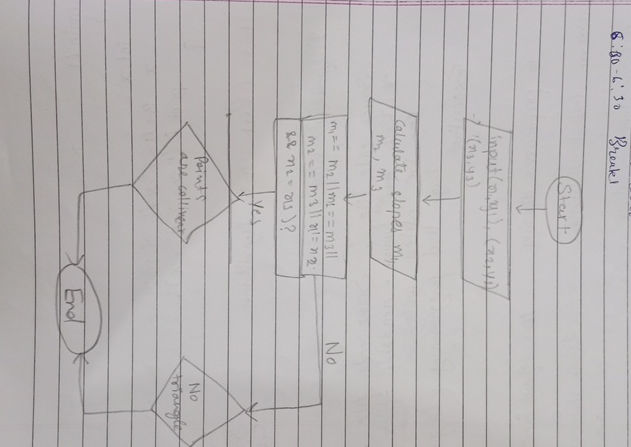 Start
input(x1,y1), (x2,y2)
, (x3,y3)
Calculate slopes m1,
m2, m3
m1 == m2 || m2 == m3 ||
m2 == m3 || x1 = x2
&& x2 = x3)?
Yes
No
Points
are collinear
No
triangle
End